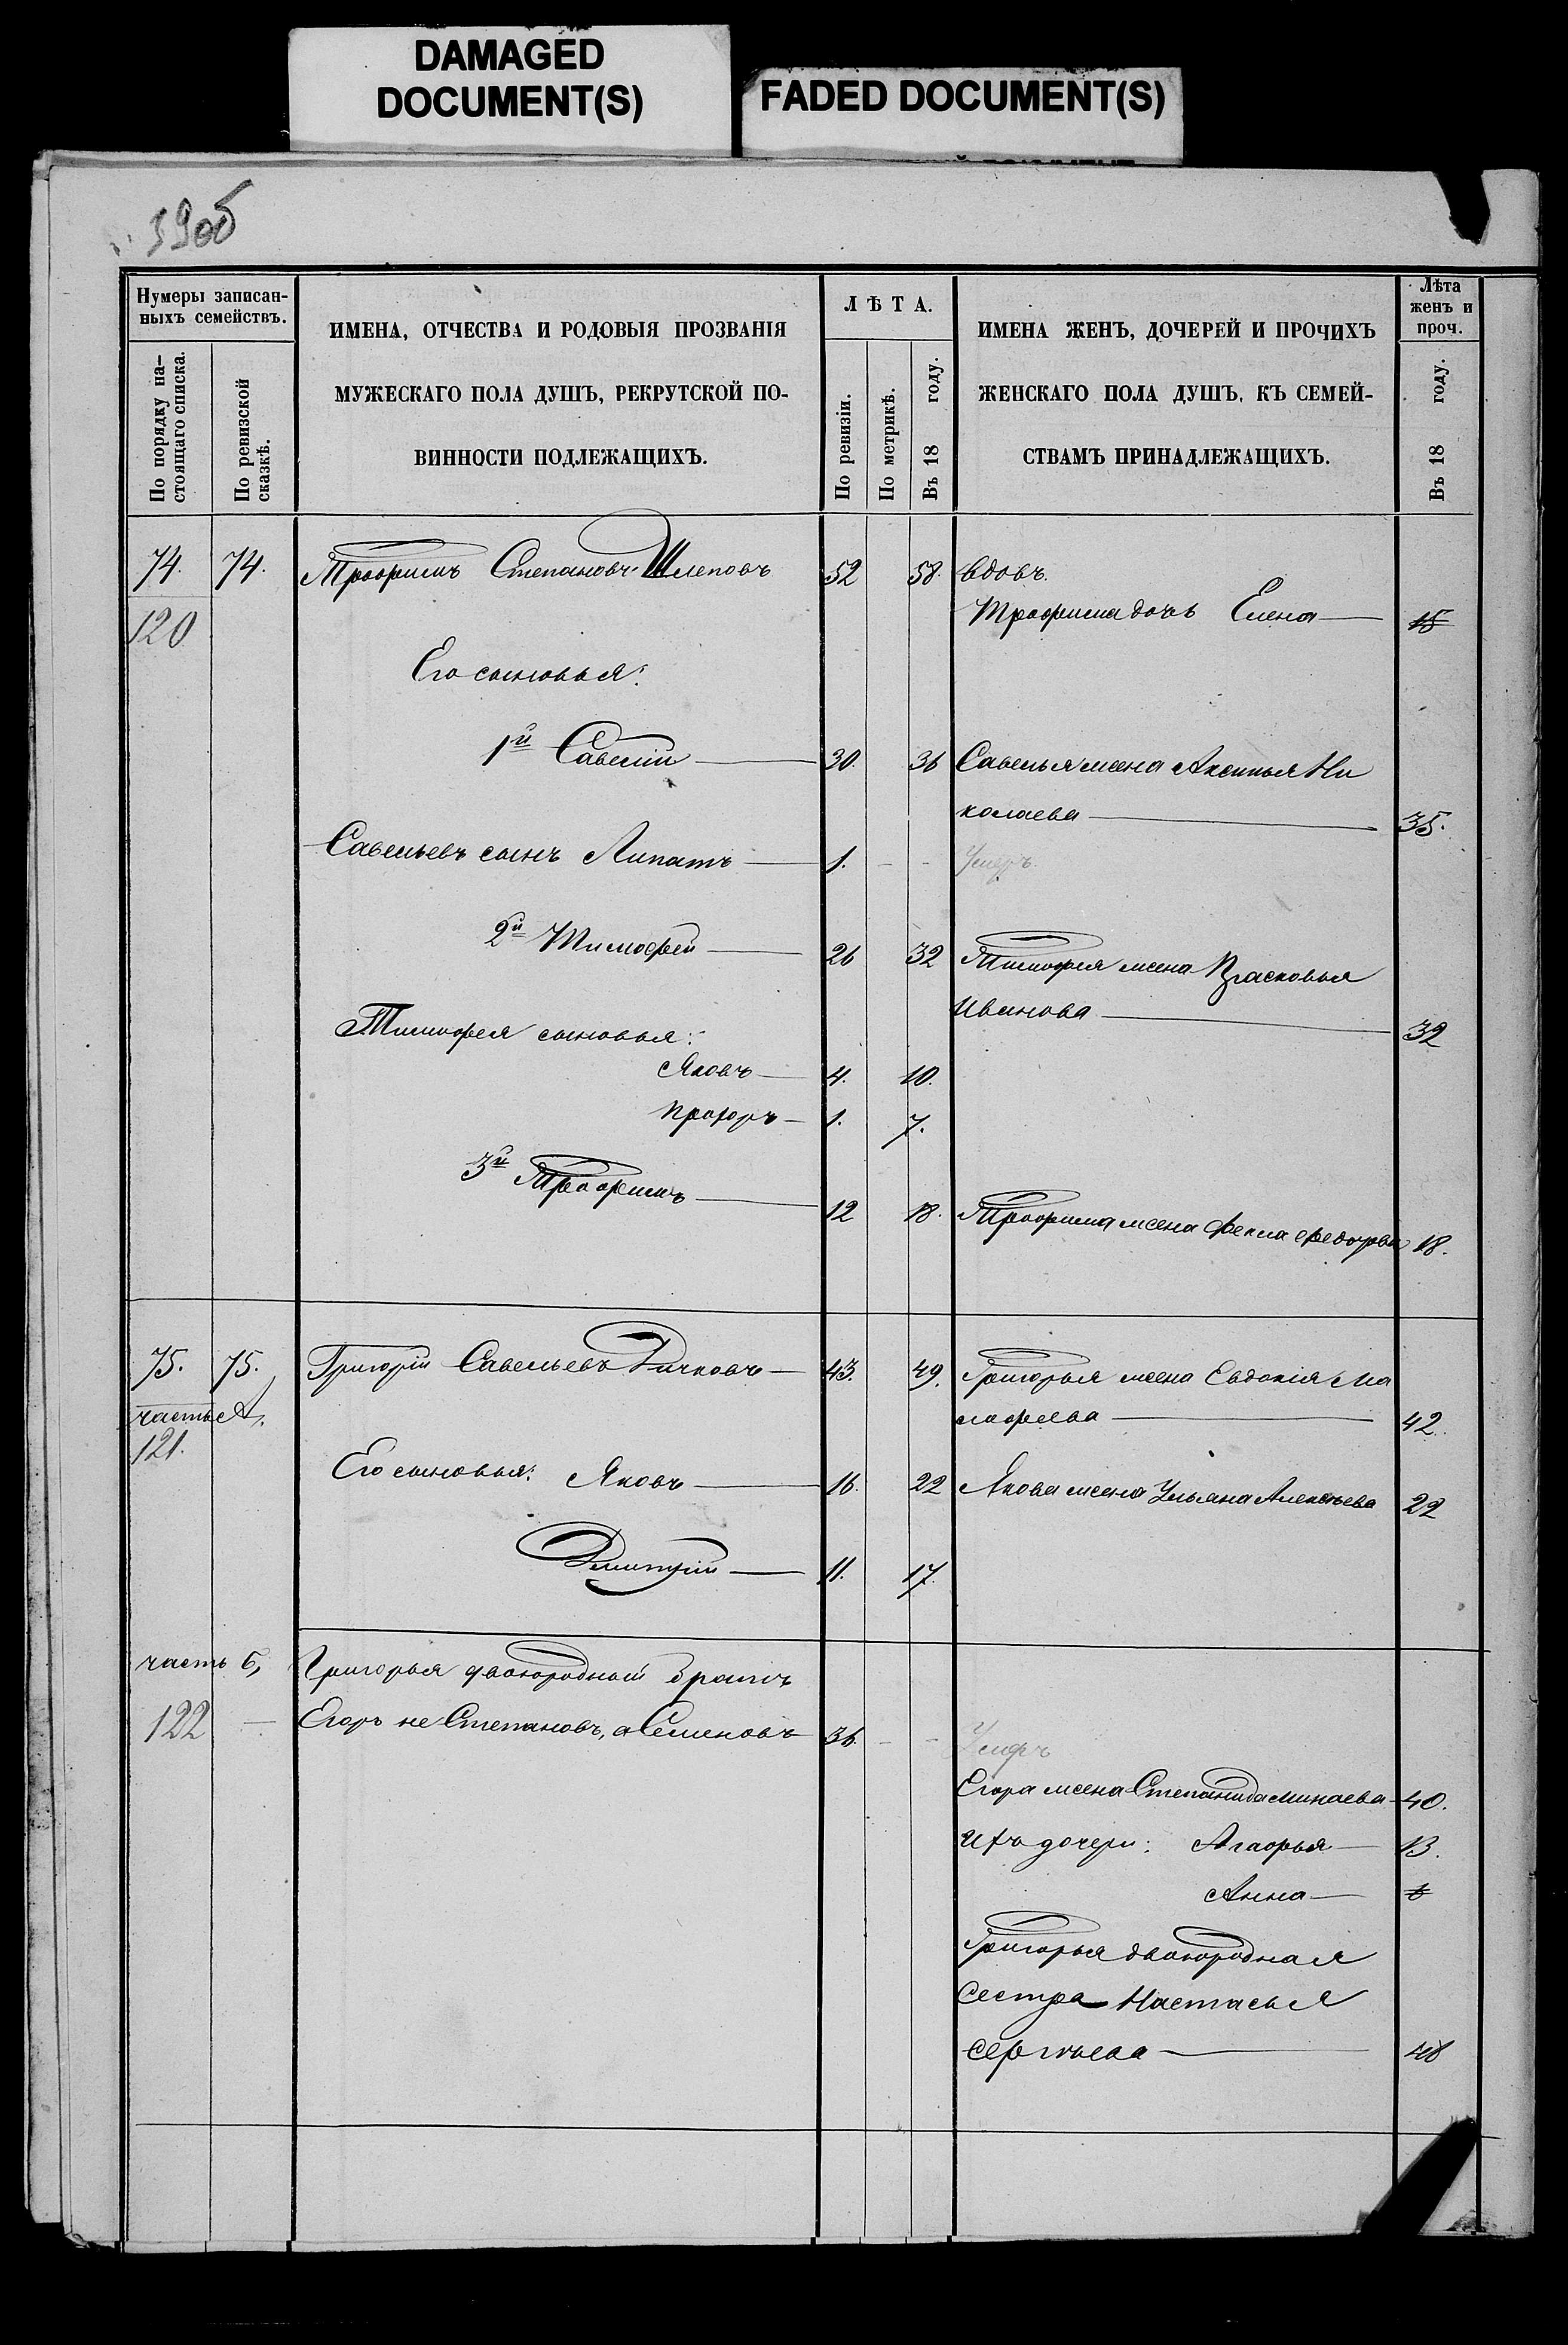 DAMAGED
DOCUMENT(S)
FADED DOCUMENT(S)
39об
Нумеры записан-
ныхъ семействъ.
По порядку на-
стоящаго списка.
По ревизской
сказкѣ.
ИМЕНА, ОТЧЕСТВА И РОДОВЫЯ ПРОЗВАНІЯ
МУЖЕСКАГО ПОЛА ДУШЪ, РЕКРУТСКОЙ ПО-
ВИННОСТИ ПОДЛЕЖАЩИХЪ.
ЛѢТА.
По ревизіи.
По метрикѣ.
Въ 18 году.
ИМЕНА ЖЕНЪ, ДОЧЕРЕЙ И ПРОЧИХЪ
ЖЕНСКАГО ПОЛА ДУШЪ, КЪ СЕМЕЙ-
СТВАМЪ ПРИНАДЛЕЖАЩИХЪ.
Лѣта
женъ и
проч.
Въ 18 году.
74. 74. Трофимъ Степановъ Шлеповъ 52 58. вдовъ.
120 Трофима дочь Елена — 15
Его сыновья:
1й Савелій — 30. 36 Савелья жена Аксинья Ни
колаева — 35.
Савельевъ сынъ Липатъ — 1. - - Умеръ.
2й Тимофей — 26 32 Тимофея жена Прасковья
Иванова — 32
Тимофея сыновья:
Яковъ — 4. 10.
Прохоръ — 1. 7.
3й Трофимъ — 12 18. Трофима жена Фекла Федорова 18.
75. 75. Григорій Савельевъ — 43. 49. Григорья жена Евдокія Ма
 — 42.
часть А,
121.
Его сыновья: Яковъ — 16. 22 Якова жена Ульяна Алексѣева 22
Дмитрій — 11. 17.
часть б, Григорья двоюродный братъ
122 - Егоръ не Степановъ, а Семеновъ 36. - - Умеръ
Егора жена Степанида Минаева - 40.
Ихъ дочери: Агафья — 13.
Анна —
Григорья двоюродная
сестра Настасья
Сергѣева — 48